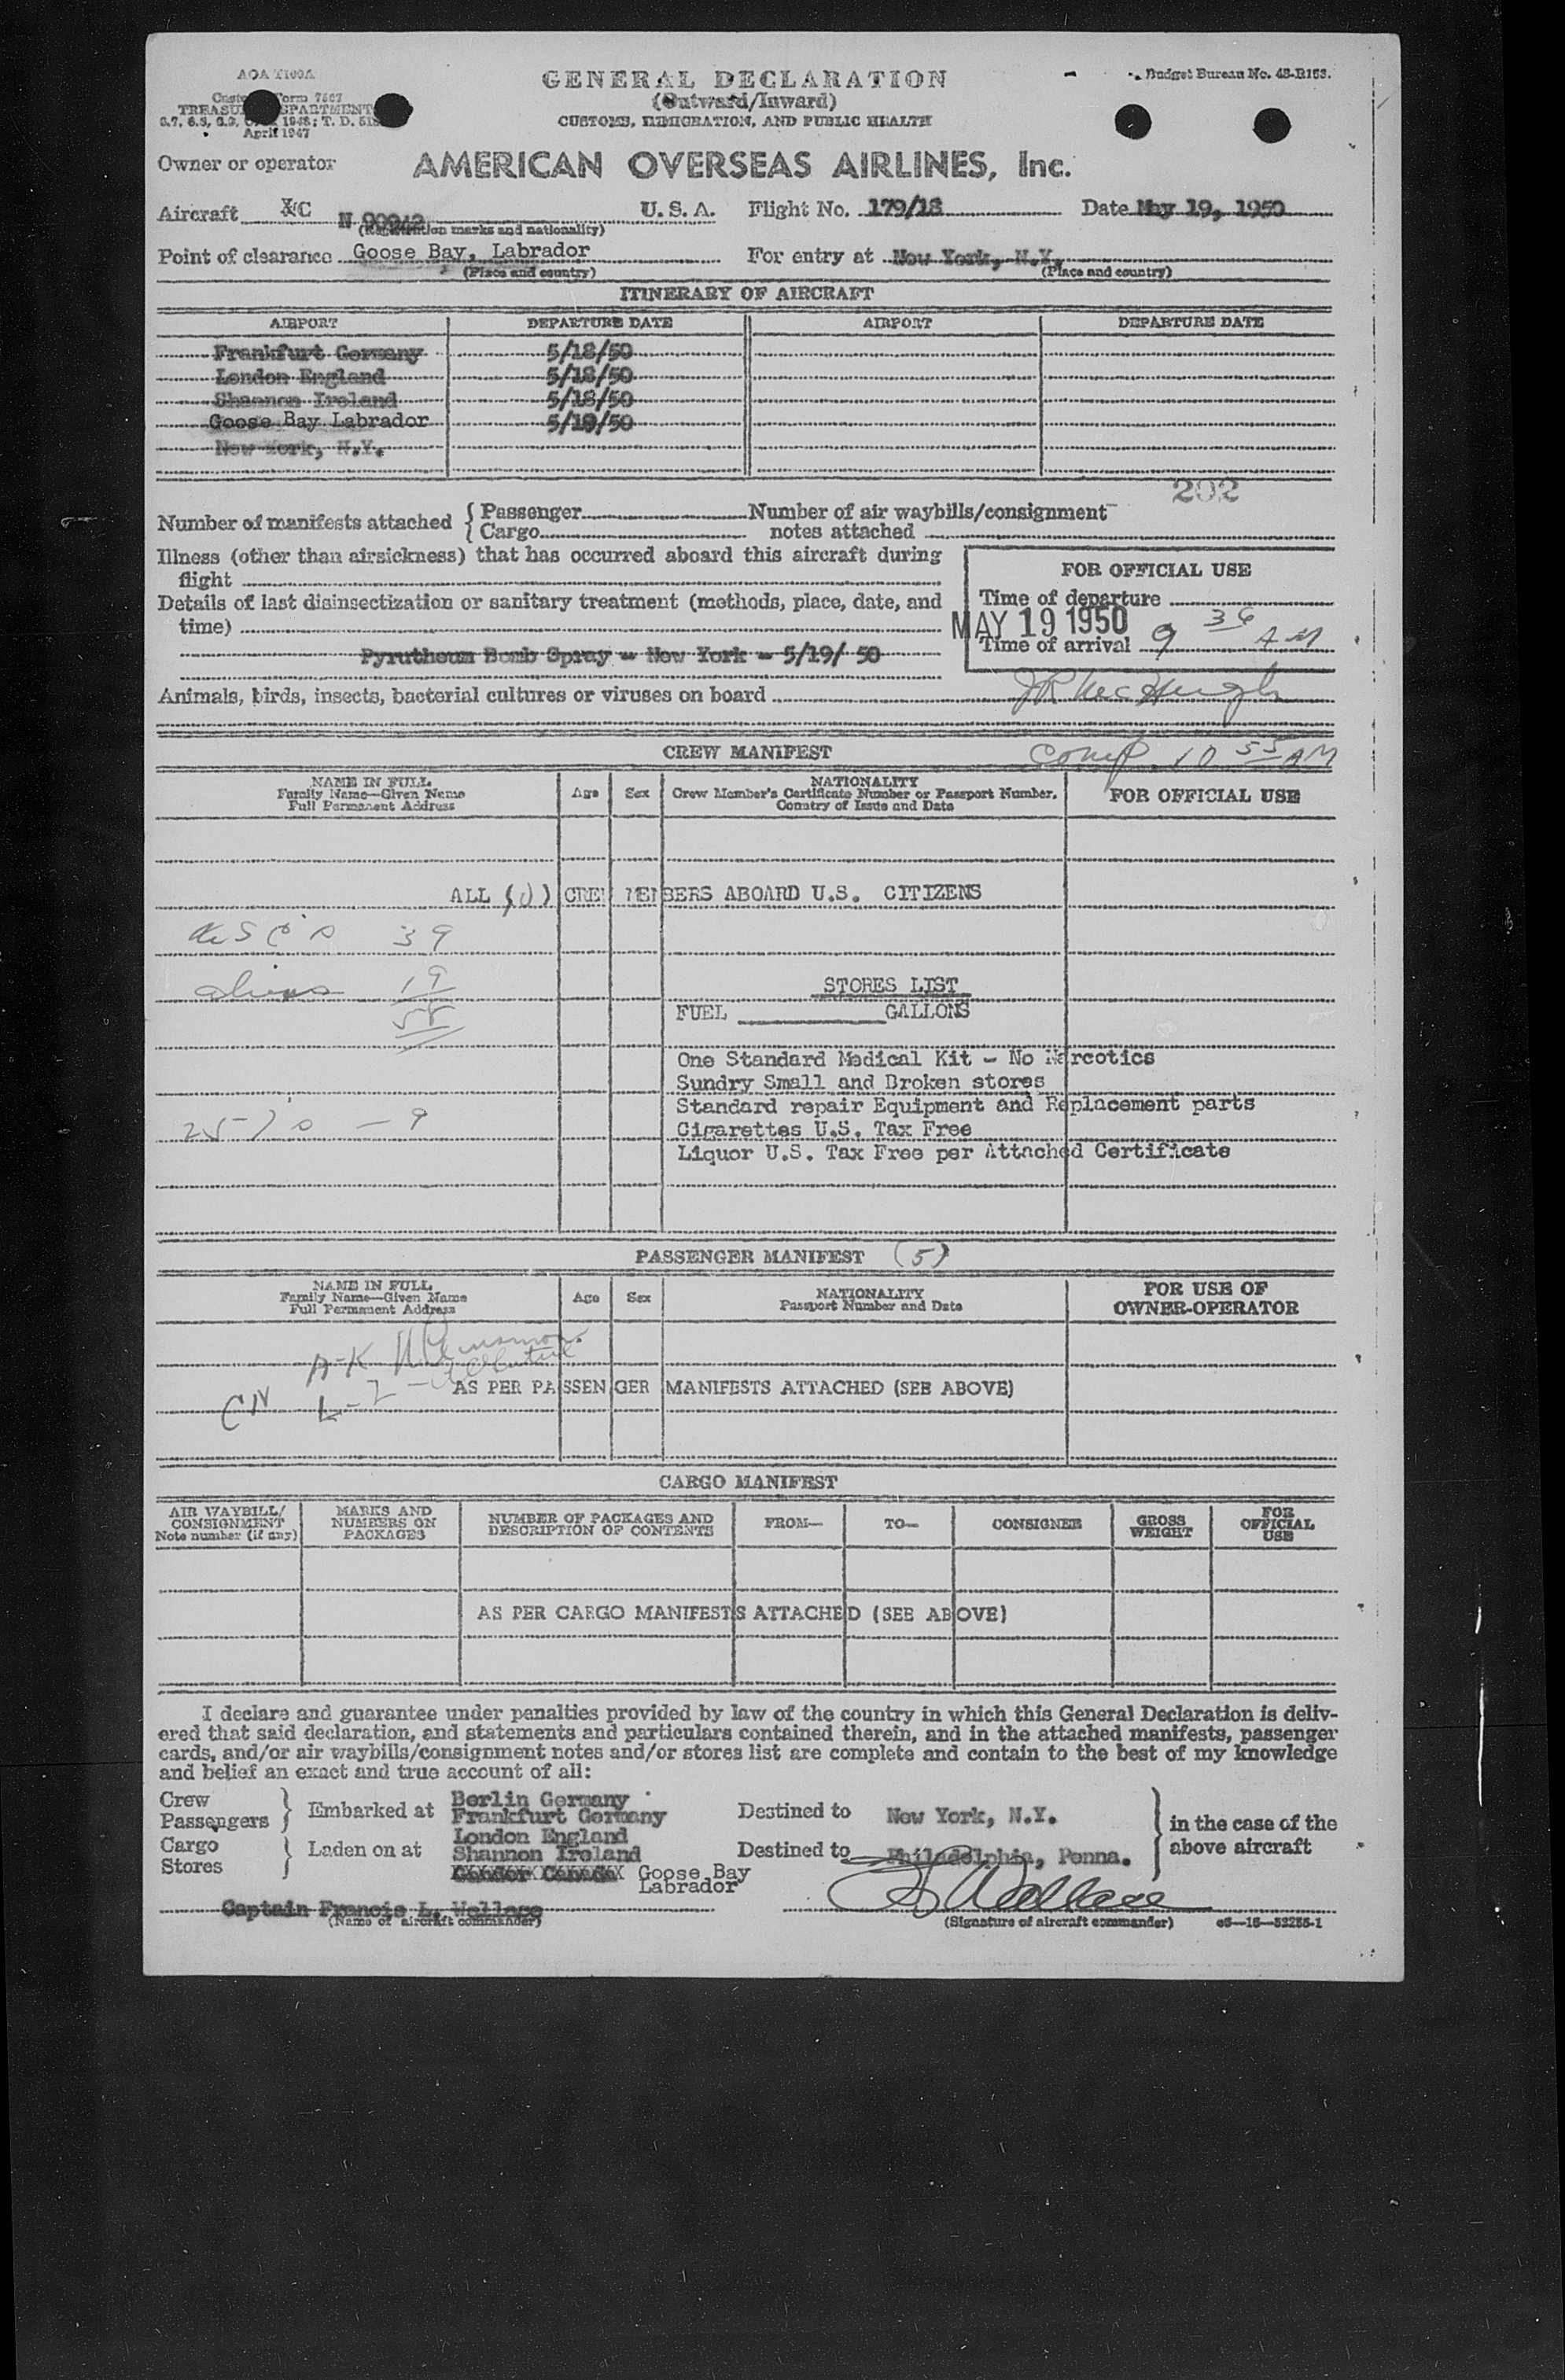 AOA T100A
Customs Form 7507
TREASURY DEPARTMENT
April 1947
GENERAL DECLARATION
(Outward/Inward)
CUSTOMS, IMMIGRATION, AND PUBLIC HEALTH
Budget Bureau No. 48-R153.
Owner or operator AMERICAN OVERSEAS AIRLINES, Inc.
Aircraft N 90942 U. S. A. Flight No. 179/18 Date May 19, 1950
(Registration marks and nationality)
Point of clearance Goose Bay, Labrador For entry at New York, N.Y.
(Place and country) (Place and country)
ITINERARY OF AIRCRAFT
AIRPORT DEPARTURE DATE AIRPORT DEPARTURE DATE
Frankfurt Germany 5/18/50
London England 5/18/50
Shannon Ireland 5/18/50
Goose Bay Labrador 5/19/50
New York, N.Y.
202
Number of manifests attached { Passenger Number of air waybills/consignment
{ Cargo notes attached
Illness (other than airsickness) that has occurred aboard this aircraft during
flight
Details of last disinsectization or sanitary treatment (methods, place, date, and
time)
Pyrutheum Bomb Spray - New York - 5/19/ 50
FOR OFFICIAL USE
Time of departure
MAY 19 1950
Time of arrival 9 36 AM
Animals, birds, insects, bacterial cultures or viruses on board
CREW MANIFEST comp 10 55 AM
NAME IN FULL
Family Name—Given Name
Full Permanent Address
Age Sex
NATIONALITY
Crew Member's Certificate Number or Passport Number,
Country of Issue and Date
FOR OFFICIAL USE
ALL CREW MEMBERS ABOARD U.S. CITIZENS
39
aliens 19
58
STORES LIST
FUEL GALLONS
One Standard Medical Kit - No Narcotics
Sundry Small and Broken stores
Standard repair Equipment and Replacement parts
Cigarettes U.S. Tax Free
Liquor U.S. Tax Free per Attached Certificate
— 9
PASSENGER MANIFEST (5)
NAME IN FULL
Family Name—Given Name
Full Permanent Address
Age Sex
NATIONALITY
Passport Number and Date
FOR USE OF
OWNER-OPERATOR
A-K
CN L-Z
AS PER PASSENGER MANIFESTS ATTACHED (SEE ABOVE)
CARGO MANIFEST
AIR WAYBILL/
CONSIGNMENT
Note number (if any)
MARKS AND
NUMBERS ON
PACKAGES
NUMBER OF PACKAGES AND
DESCRIPTION OF CONTENTS
FROM— TO— CONSIGNEE
GROSS
WEIGHT
FOR
OFFICIAL
USE
AS PER CARGO MANIFESTS ATTACHED (SEE ABOVE)
I declare and guarantee under penalties provided by law of the country in which this General Declaration is deliv-
ered that said declaration, and statements and particulars contained therein, and in the attached manifests, passenger
cards, and/or air waybills/consignment notes and/or stores list are complete and contain to the best of my knowledge
and belief an exact and true account of all:
Crew
Passengers } Embarked at
Cargo
Stores } Laden on at
Berlin Germany
Frankfurt Germany
London England
Shannon Ireland
Gander Canada Goose Bay
Labrador
Destined to New York, N.Y.
Destined to Philadelphia, Penna.
} in the case of the
above aircraft
Captain Francis L. Wallace
(Name of aircraft commander)
(Signature of aircraft commander) c6—16—52255-1